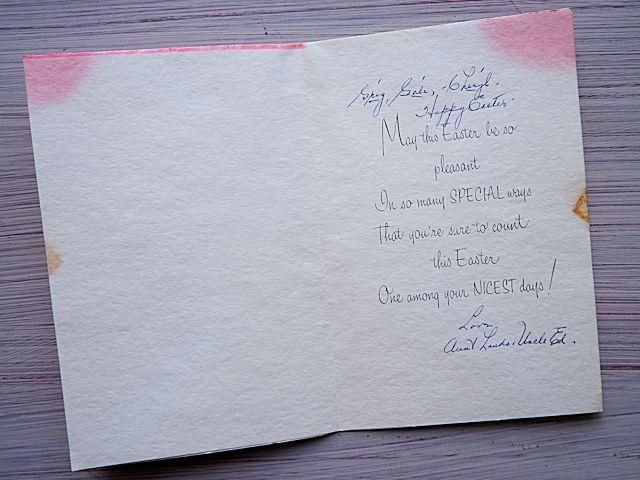 Greg, Gale, Cheryl.
Happy Easter.
May this Easter be so
pleasant
In so many SPECIAL ways
That you're sure to count
this Easter
One among your NICEST days!
Love
Aunt Linda & Uncle Ed.